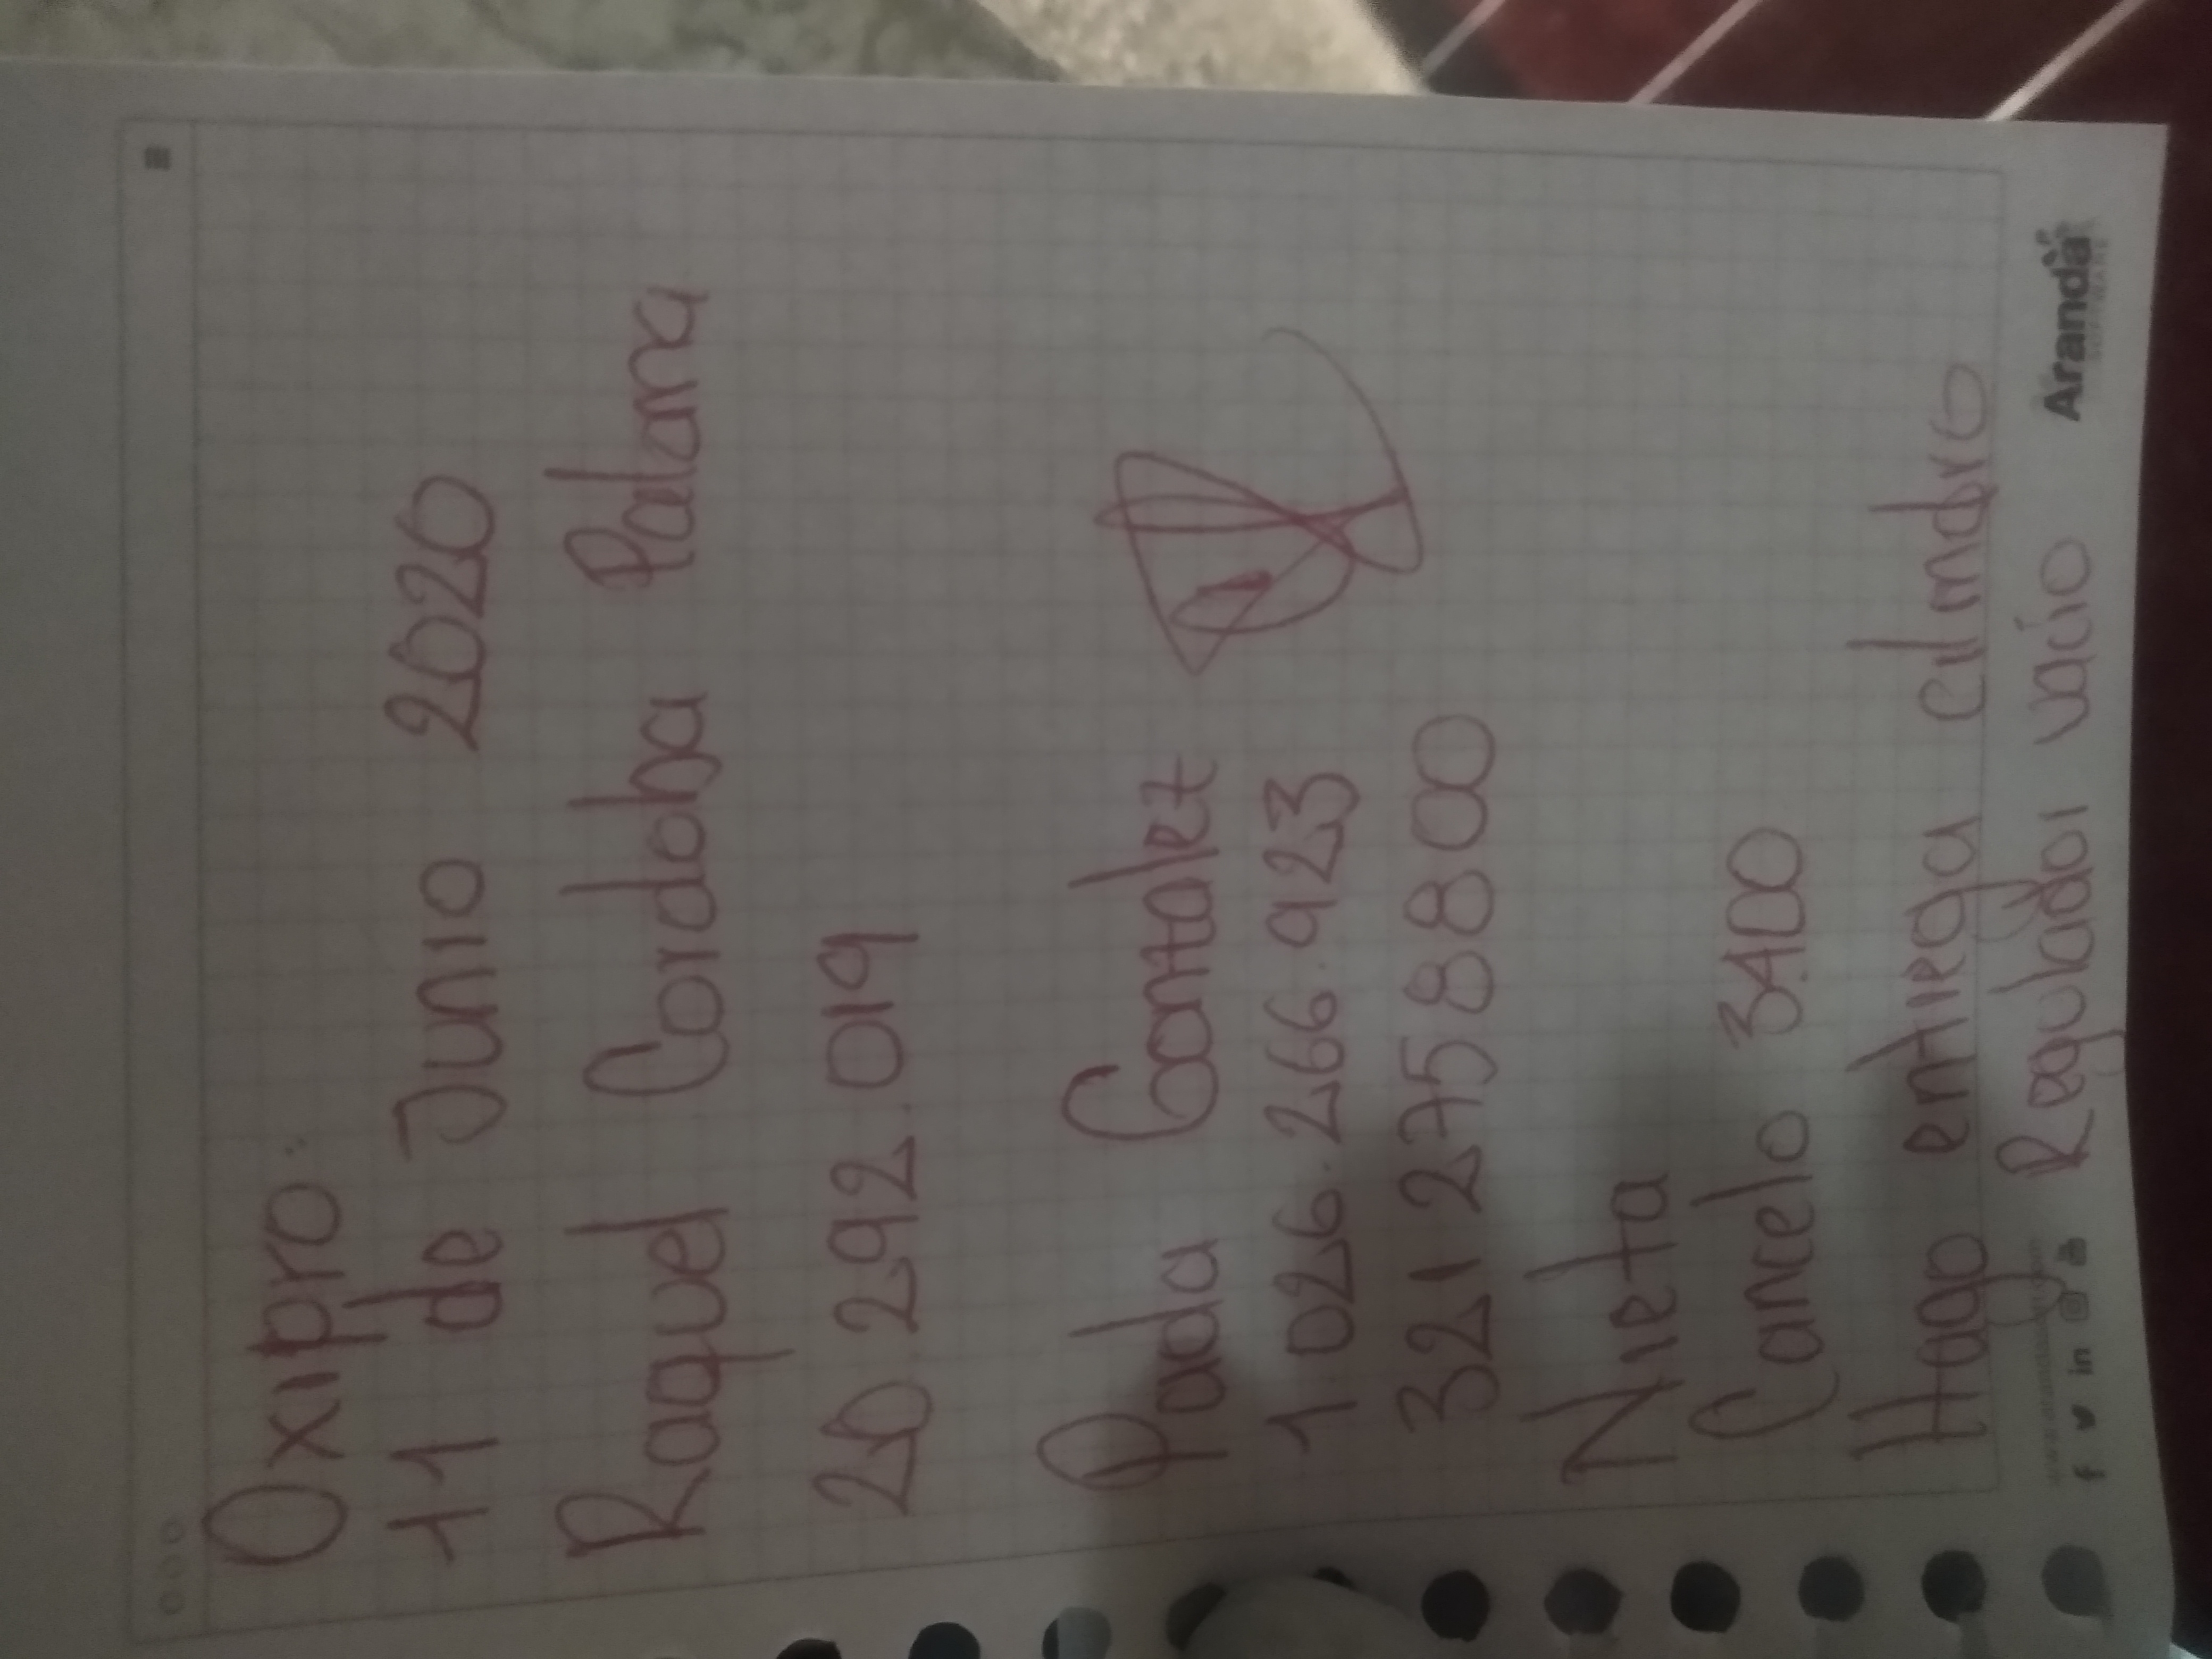 Oxipro.
11 de Junio 2020
Raquel Cordoba
20.292.019
Contalez
1 026.266.923
321 2758800
Nieta
Cancelo 3400
Hago entrega cilindro
Regulador vacio
f in
Aranda
SOFTWARE